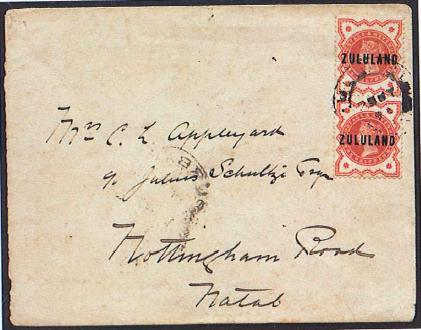 ZULULAND
ZULULAND
Mrs C. L. Appleyard
c/o Julius Schultz Esqr
Nottingham Road
Natal